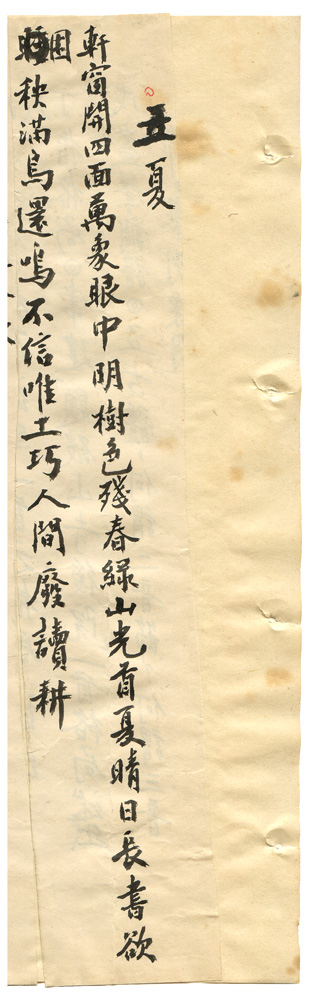 夏
軒窗開四面萬象眼中明樹色殘春綠山光首夏晴日長書欲
困秧滿鳥還鳴不信唯工巧人間廢讀耕